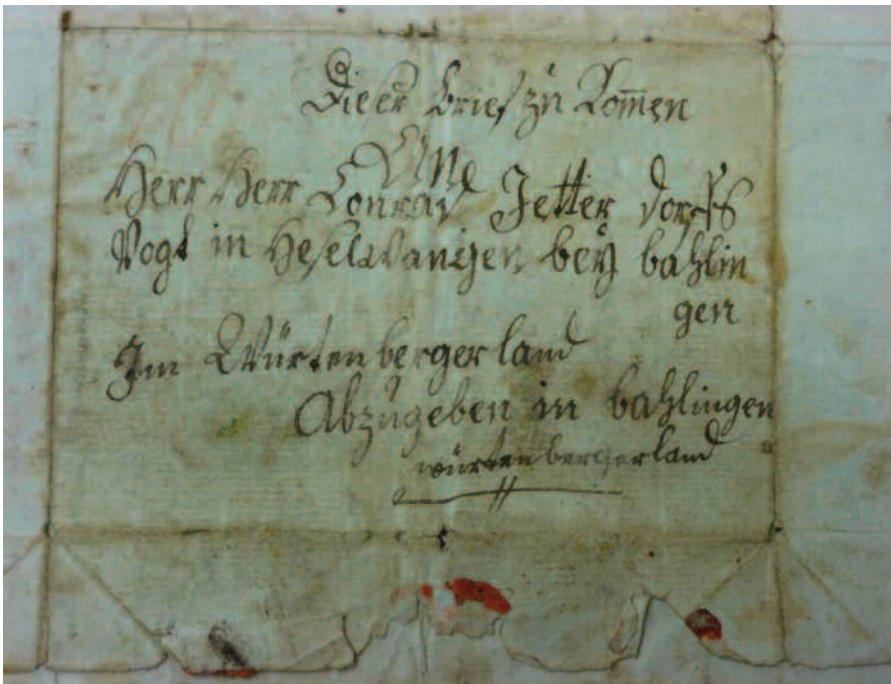 Dieser brief zu Komen
An
Herr Herr Conrad Jetter dorffs
Vogt in Heselwangen bey bahlin
gen
Im Würtenbergerland
Abzugeben in bahlingen
würtenbergerland